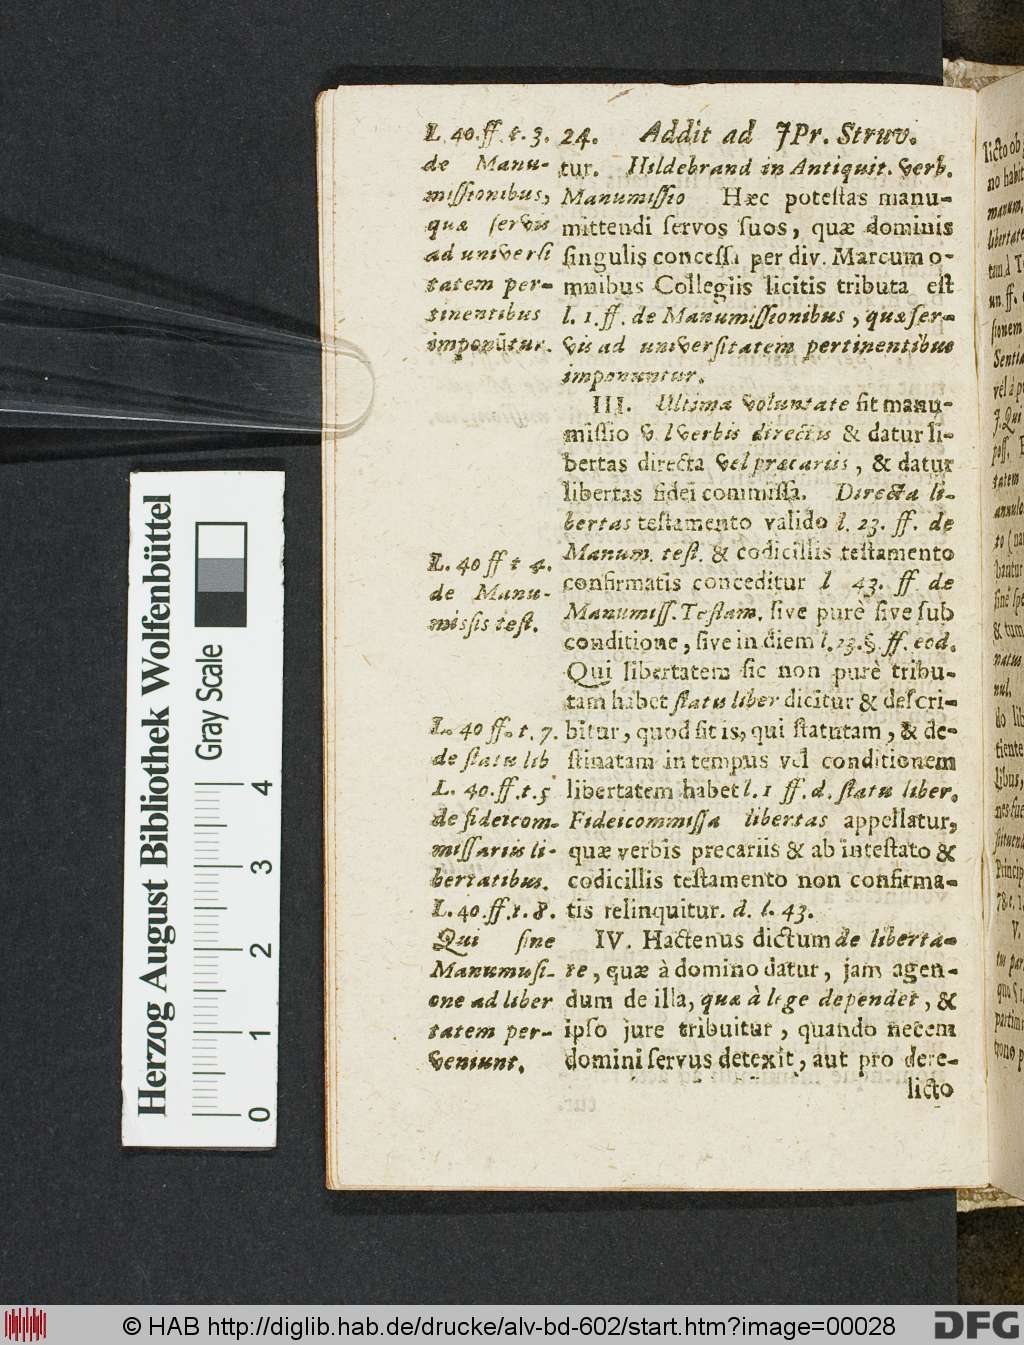 24. Addit ad JPr. Struv.
L. 40. ff. t. 3.
de Manu-
missionibus,
quæ servis
ad universi
tatem per-
tinentibus
imponūtur.
tur. Hildebrand in Antiquit. verb.
Manumissio Hæc potestas manu-
mittendi servos suos, quæ dominis
singulis concessa per div. Marcum o-
mnibus Collegiis licitis tributa est
l. 1. ff. de Manumissionibus, quæ ser-
vis ad universitatem pertinentibus
imponuntur.
III. Ultima voluntate fit manu-
missio v. l verbis directis & datur li-
bertas directa vel precariis, & datur
libertas fidei commissa. Directa li-
bertas testamento valido l. 23. ff. de
Manum. test. & codicillis testamento
confirmatis conceditur l 43. ff de
Manumiss. Testam. sive purè sive sub
conditione, sive in diem l. 23. §. ff. eod.
Qui libertatem sic non purè tribu-
tam habet statu liber dicitur & descri-
bitur, quod sit is, qui statutam, & de-
stinatam in tempus vel conditionem
libertatem habet l. 1 ff. d. statu liber.
Fideicommissa libertas appellatur,
quæ verbis precariis & ab intestato &
codicillis testamento non confirma-
tis relinquitur. d. l. 43.
L. 40 ff t 4.
de Manu-
missis test.
L. 40 ff. t. 7.
de statu lib
L. 40. ff. t. 5
de fideicom-
missariis li-
bertatibus.
L. 40. ff. t. 8.
Qui sine
Manumusi-
one ad liber
tatem per-
veniunt.
IV. Hactenus dictum de liberta-
te, quæ à domino datur, jam agen-
dum de illa, quæ à lege dependet, &
ipso jure tribuitur, quando necem
domini servus detexit, aut pro dere-
licto
licto ob
no habit
manum.
libertate
Herzog August Bibliothek Wolfenbüttel
Gray Scale
0 1 2 3 4
© HAB http://diglib.hab.de/drucke/alv-bd-602/start.htm?image=00028
DFG